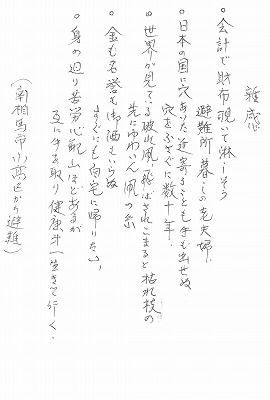 雑感
○会計で財布覗いて淋しそう
避難所暮しの老夫婦.
○日本の国に穴あいた近寄ることも手も出せぬ
穴をふさぐに数十年.
○世界が見てる破れ凧飛ばされこまると枯れ枝の
先にゆわいん凧の糸
○金も名誉も御酒もいらぬ
今すぐにも自宅に帰りたい,
○身の廻り苦労心配山ほどあるが
互に手を取り健康第一生きて行く.
(南相馬市小高区から避難)